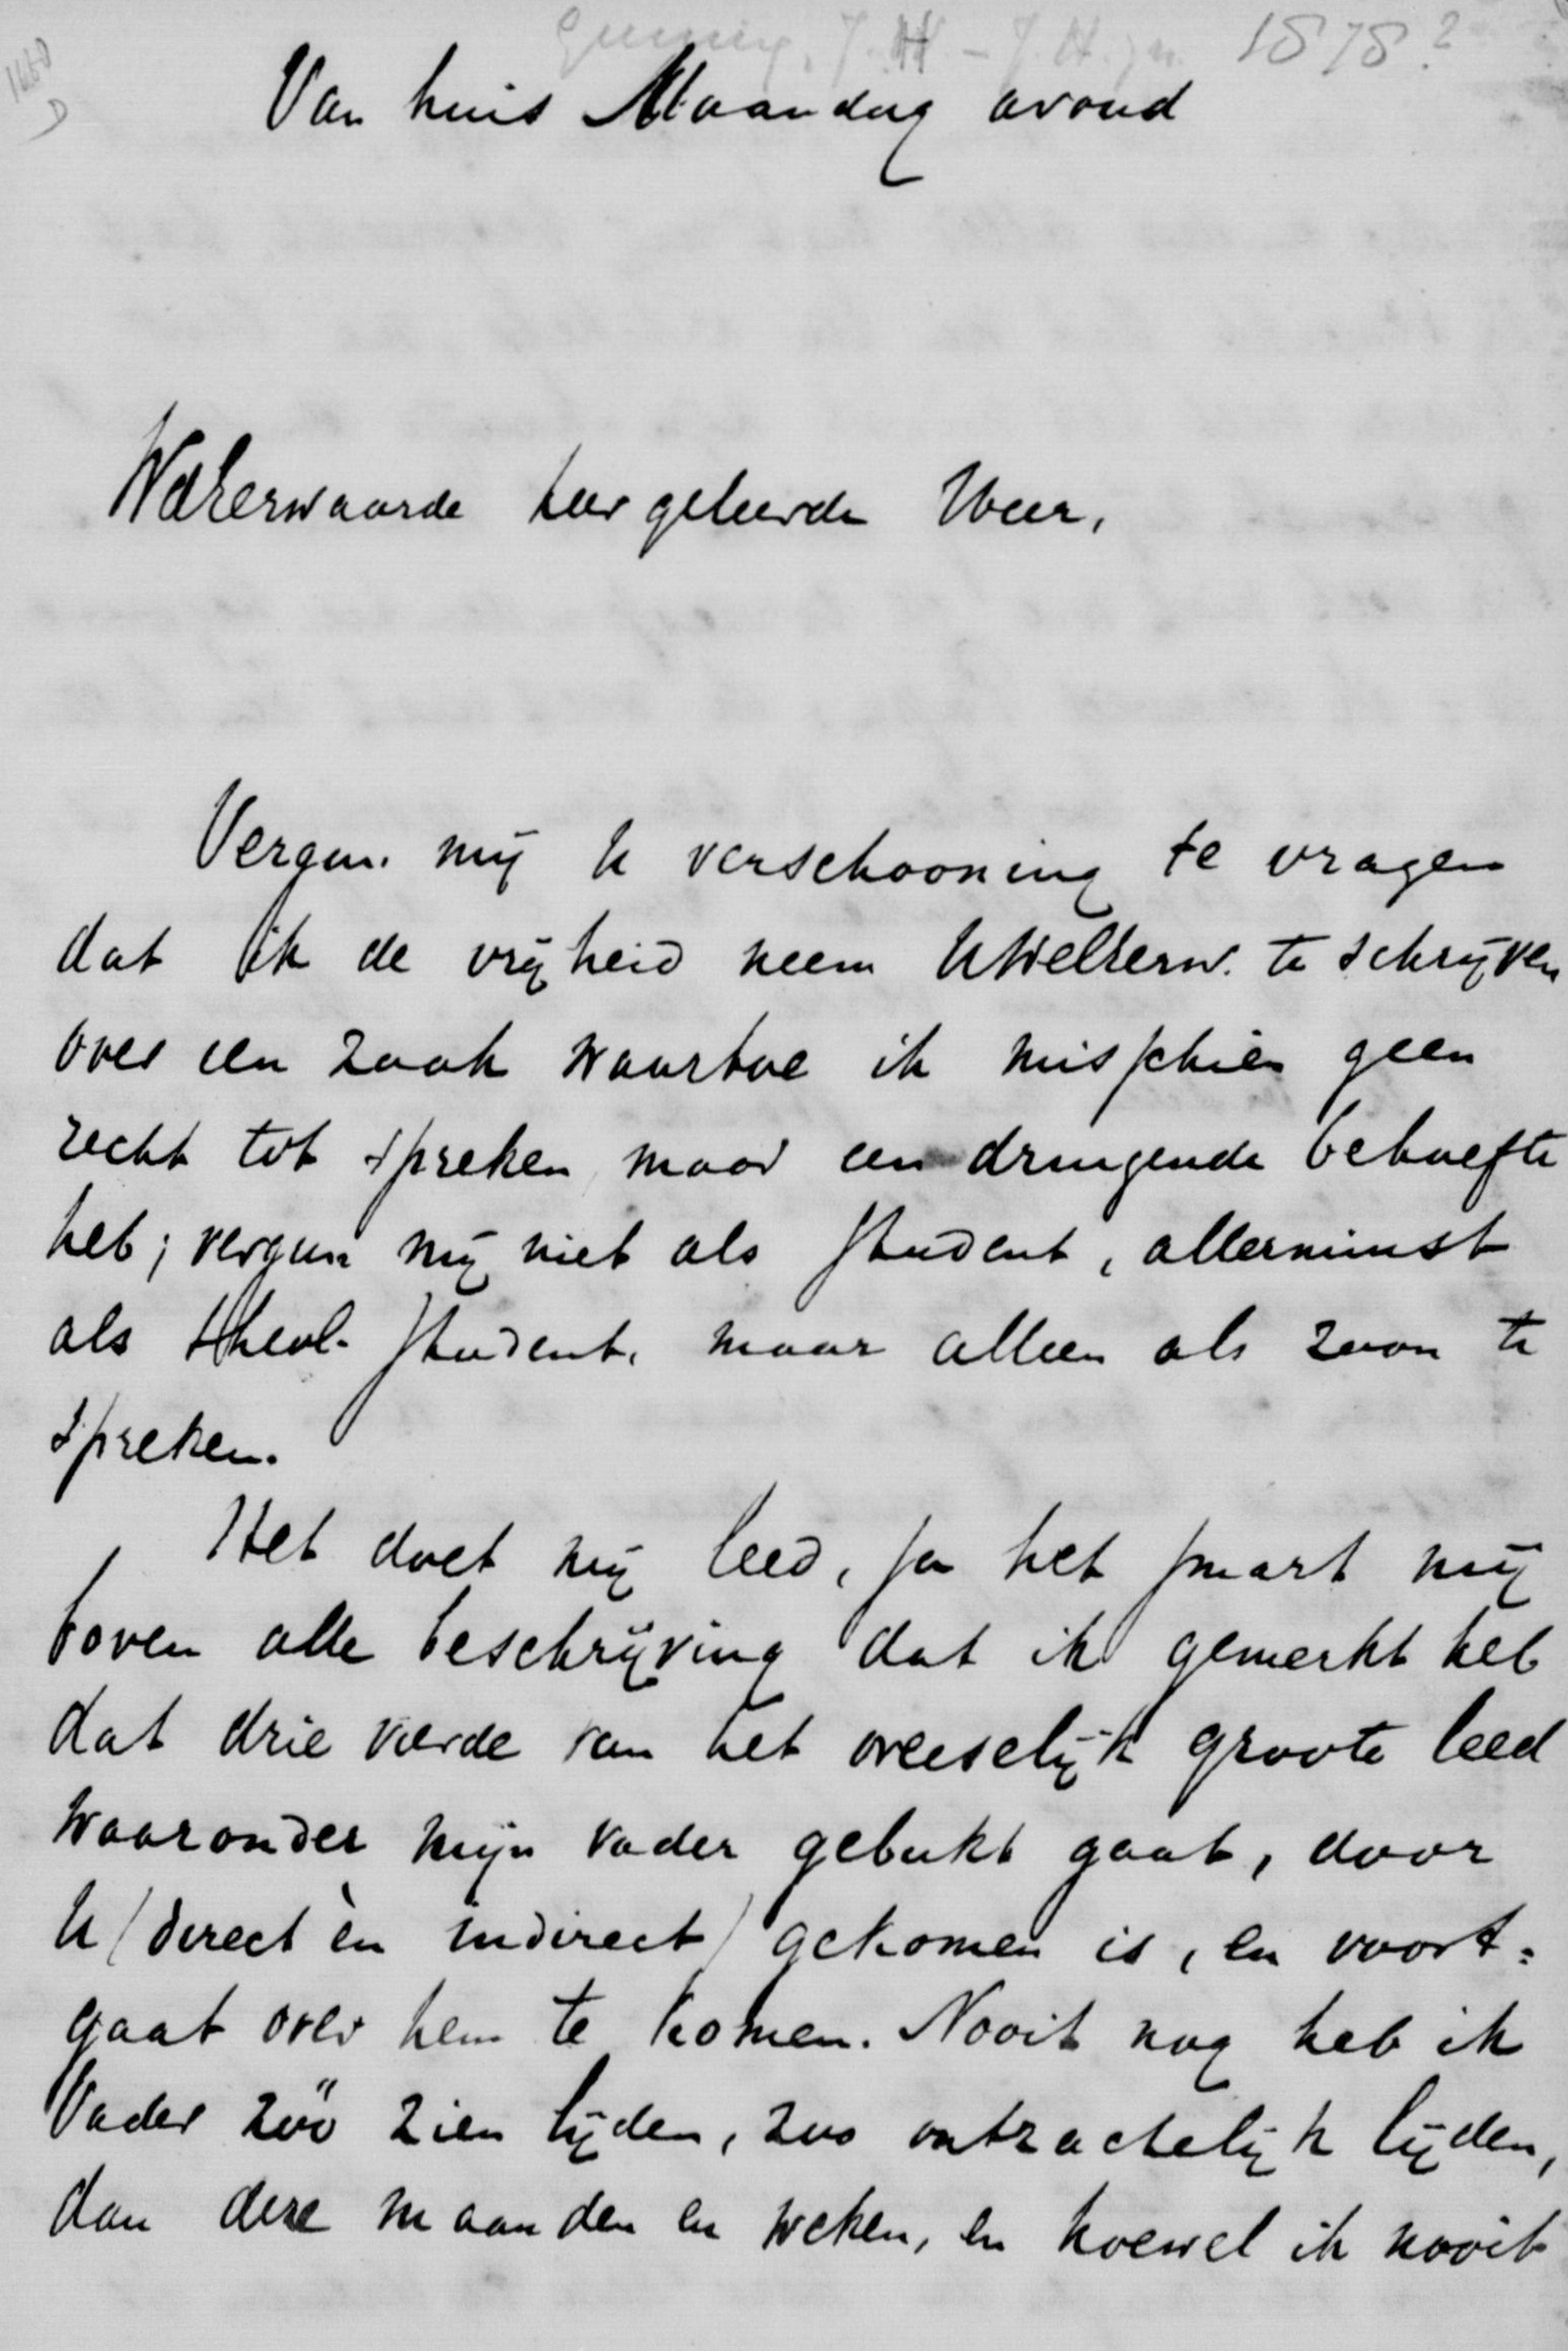 Gunning, J.H. - J.H. jr. 1878?
Van huis Maandag avond
WelEerwaarde hooggeleerde Heer,
Vergun mij U verschooning te vragen
dat ik de vrijheid neem UWelEerw. te schrijven
over een zaak waartoe ik misschien geen
recht tot spreken, maar een dringende behoefte
heb; vergun mij niet als student, allerminst
als theol. student, maar alleen als zoon te
spreken.
Het doet mij leed, ja het smart mij
boven alle beschrijving dat ik gemerkt heb
dat drie vierde van het vreeselijk groote leed
waaronder mijn vader gebukt gaat, door
U (direct èn indirect) gekomen is, en voort-
gaat over hem te komen. Nooit nog heb ik
Vader zóó zien lijden, zoo ontzachelijk lijden,
dan deze maanden en weken, en hoewel ik nooit